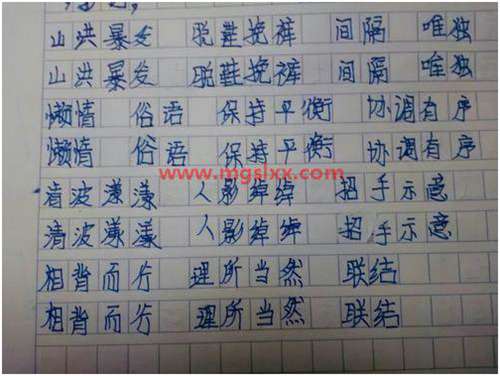 山洪暴发 脱鞋挽裤 间隔 唯独
山洪暴发 脱鞋挽裤 间隔 唯独
懒惰 俗语 保持平衡 协调有序
懒惰 俗语 保持平衡 协调有序
清波漾漾 人影绰绰 招手示意
www.mgslxx.com
清波漾漾 人影绰绰 招手示意
相背而行 理所当然 联结
相背而行 理所当然 联结